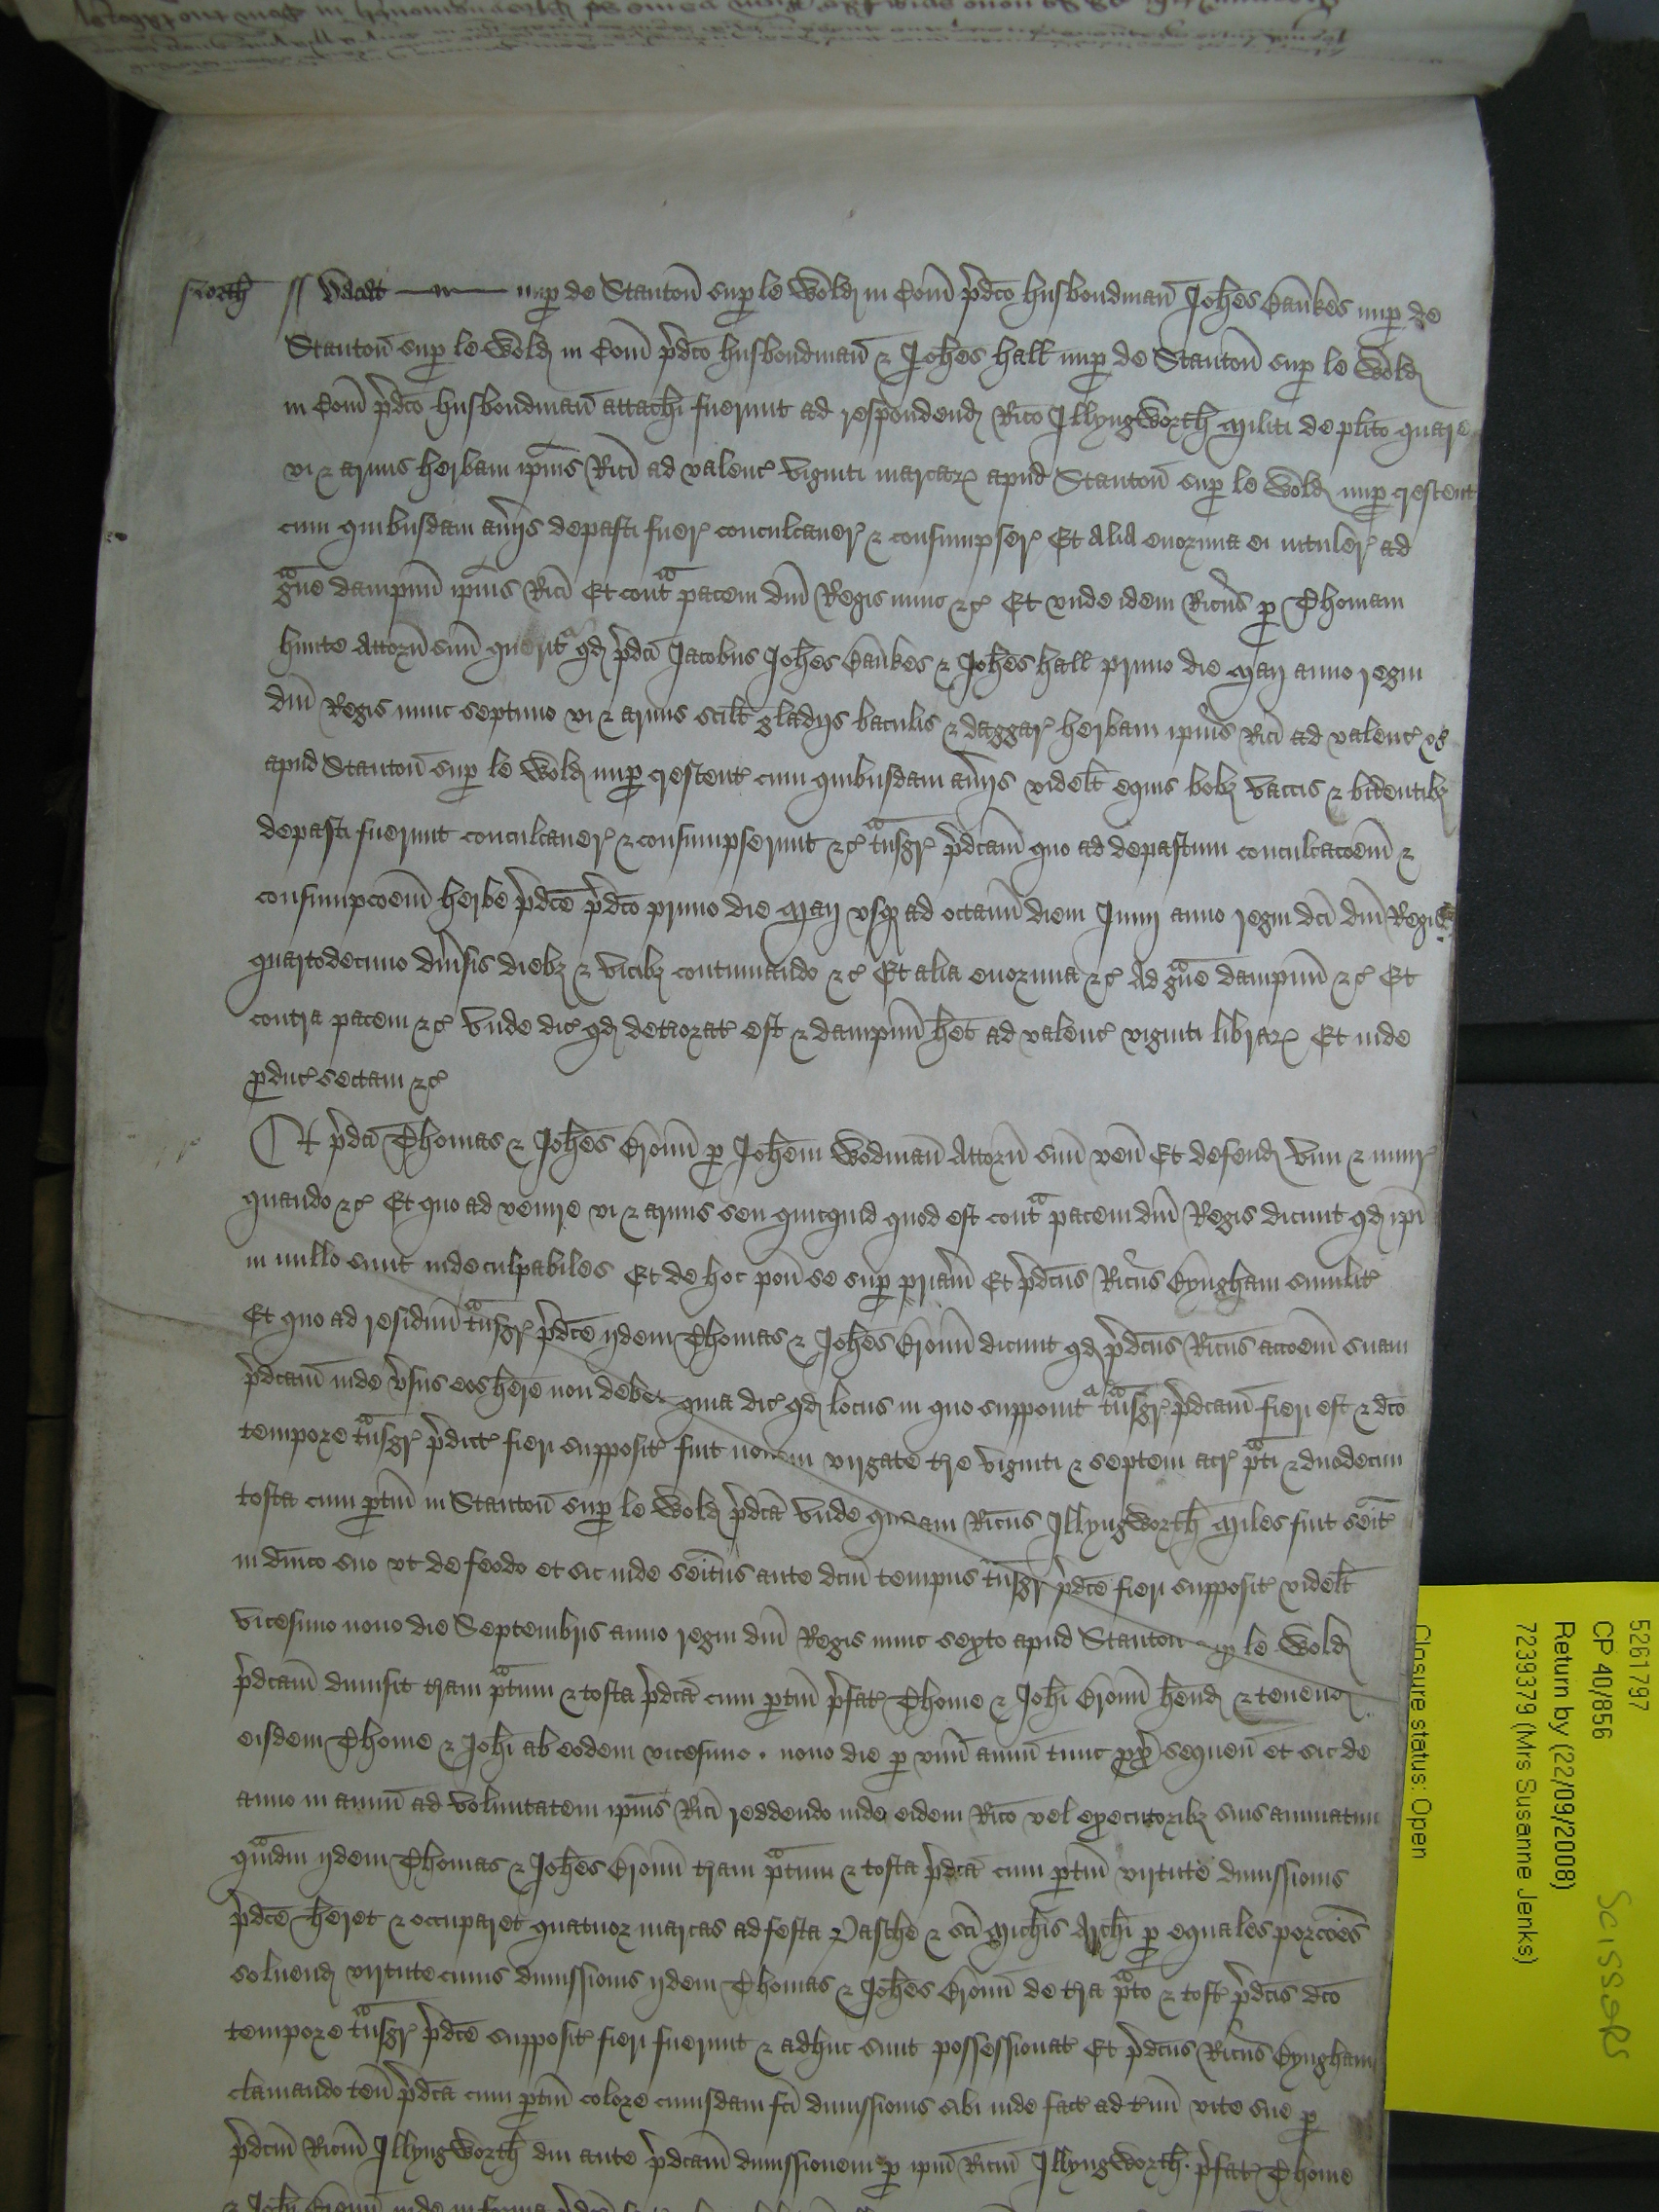 nup de Stanton sup le Wold in Com pdco husbondman Johes Bankes nup de
Stanton sup le Wold in Com pdco husbondman & Johes Hall nup de Stanton sup le Wold
in Com pdco husbondman attach fuerunt ad respondend Rico Illyngworth Militi de plito quare
vi & armis herbam ipius Rici ad valenc viginti marcar apud Stanton sup le Wold nup crescent
cum quibusdam aviis depasti fuer conculcaver & consumpser Et alia enormia ei intuler ad
gave dampnu ipius Rici Et contra pacem dni Regis nunc &c Et unde idem Ricus p Thomam
Attorn suu querit qd pdci Jacobus Johes Bankes & Johes Hall primo die Maij anno regni
dni Regis nunc septimo vi & armis scilt gladiis baculis & daggar herbam ipius Rici ad valenc &c
apud Stanton sup le Wold nup crescent cum quibusdam aviis videlt equis bobz vaccis & bidentibz
depasti fuerunt conculcaver & consumpserunt &c tnsgr pdcam quo ad depastum conculcacoem &
consumpcoem herbe pdce pdco primo die Maij usq ad octavu diem Junij anno regni dci dni Regis
quartodecimo divsis diebz & vicibz continuando &c Et alia enormia &c Ad gave dampnu &c Et
contra pacem &c Unde dic qd deteriorat est & dampnu het ad valenc viginti librar Et inde
pduc sectam &c
Et pdci Thomas & Johes Broun p Johem Wodman Attorn suu ven Et defend vim & iniur
quando &c Et quo ad venire vi & armis seu quicquid quod est contra pacem dni Regis dicunt qd ipi
in nullo sunt inde culpabiles Et de hoc pon se sup priam Et pdcus Ricus Byngham similit
Et quo ad residuu tnsgr pdce ijdem Thomas & Johes Broun dicunt qd pdcus Ricus accoem suam
pdcam inde vsus eos here non debet quia dic qd locus in quo supponit tnsgr pdcam fieri est & dco
tempore tnsgr pdict fieri supposit fuit novem virgate tre viginti & septem acr pti & duodecim
tofta cum ptin in Stanton sup le Wold pdca Unde quidam Ricus Illyngworth Miles fuit seit
in dnico suo ut de feodo et sic inde seitus ante dcm tempus tnsgr pdce fieri supposit videlt
vicesimo nono die Septembris anno regni dni Regis nunc sexto apud Stanton sup le Wold
pdcam dimisit tram ptum & tofta pdca cum ptin pfat Thome & Johi Broun hend & tenend
eisdem Thome & Johi ab eodem vicesimo nono die p unu annu tunc px sequen et sic de
anno in annu ad voluntatem ipius Rici reddendo inde eidem Rico vel executoribz suis annuatim
qmdiu ijdem Thomas & Johes Broun tram ptum & tofta pdca cum ptin virtute dimissionis
pdce heret & occuparet quatuor marcas ad festa Pasche & sci Michis Archi p equales porcoes
solvend virtute cuius dimissionis ijdem Thomas & Johes Broun de tra pto & toft pdcis dco
tempore tnsgr pdce supposit fieri fuerunt & adhuc sunt possessionat Et pdcus Ricus Byngham
clamando ten pdca cum ptin colore cuiusdam fci dimissionis sibi inde fact ad tmin vite sue p
pdcm Ricm Illyngworth diu ante pdcam dimissionem p ipm Ricm Illyngworth pfat Thome
& Johi Broun inde in forma
5261797
CP 40/856
Return by (22/09/2008)
7239379 (Mrs Susanne Jenks)
Closure status: Open
SCISSORS